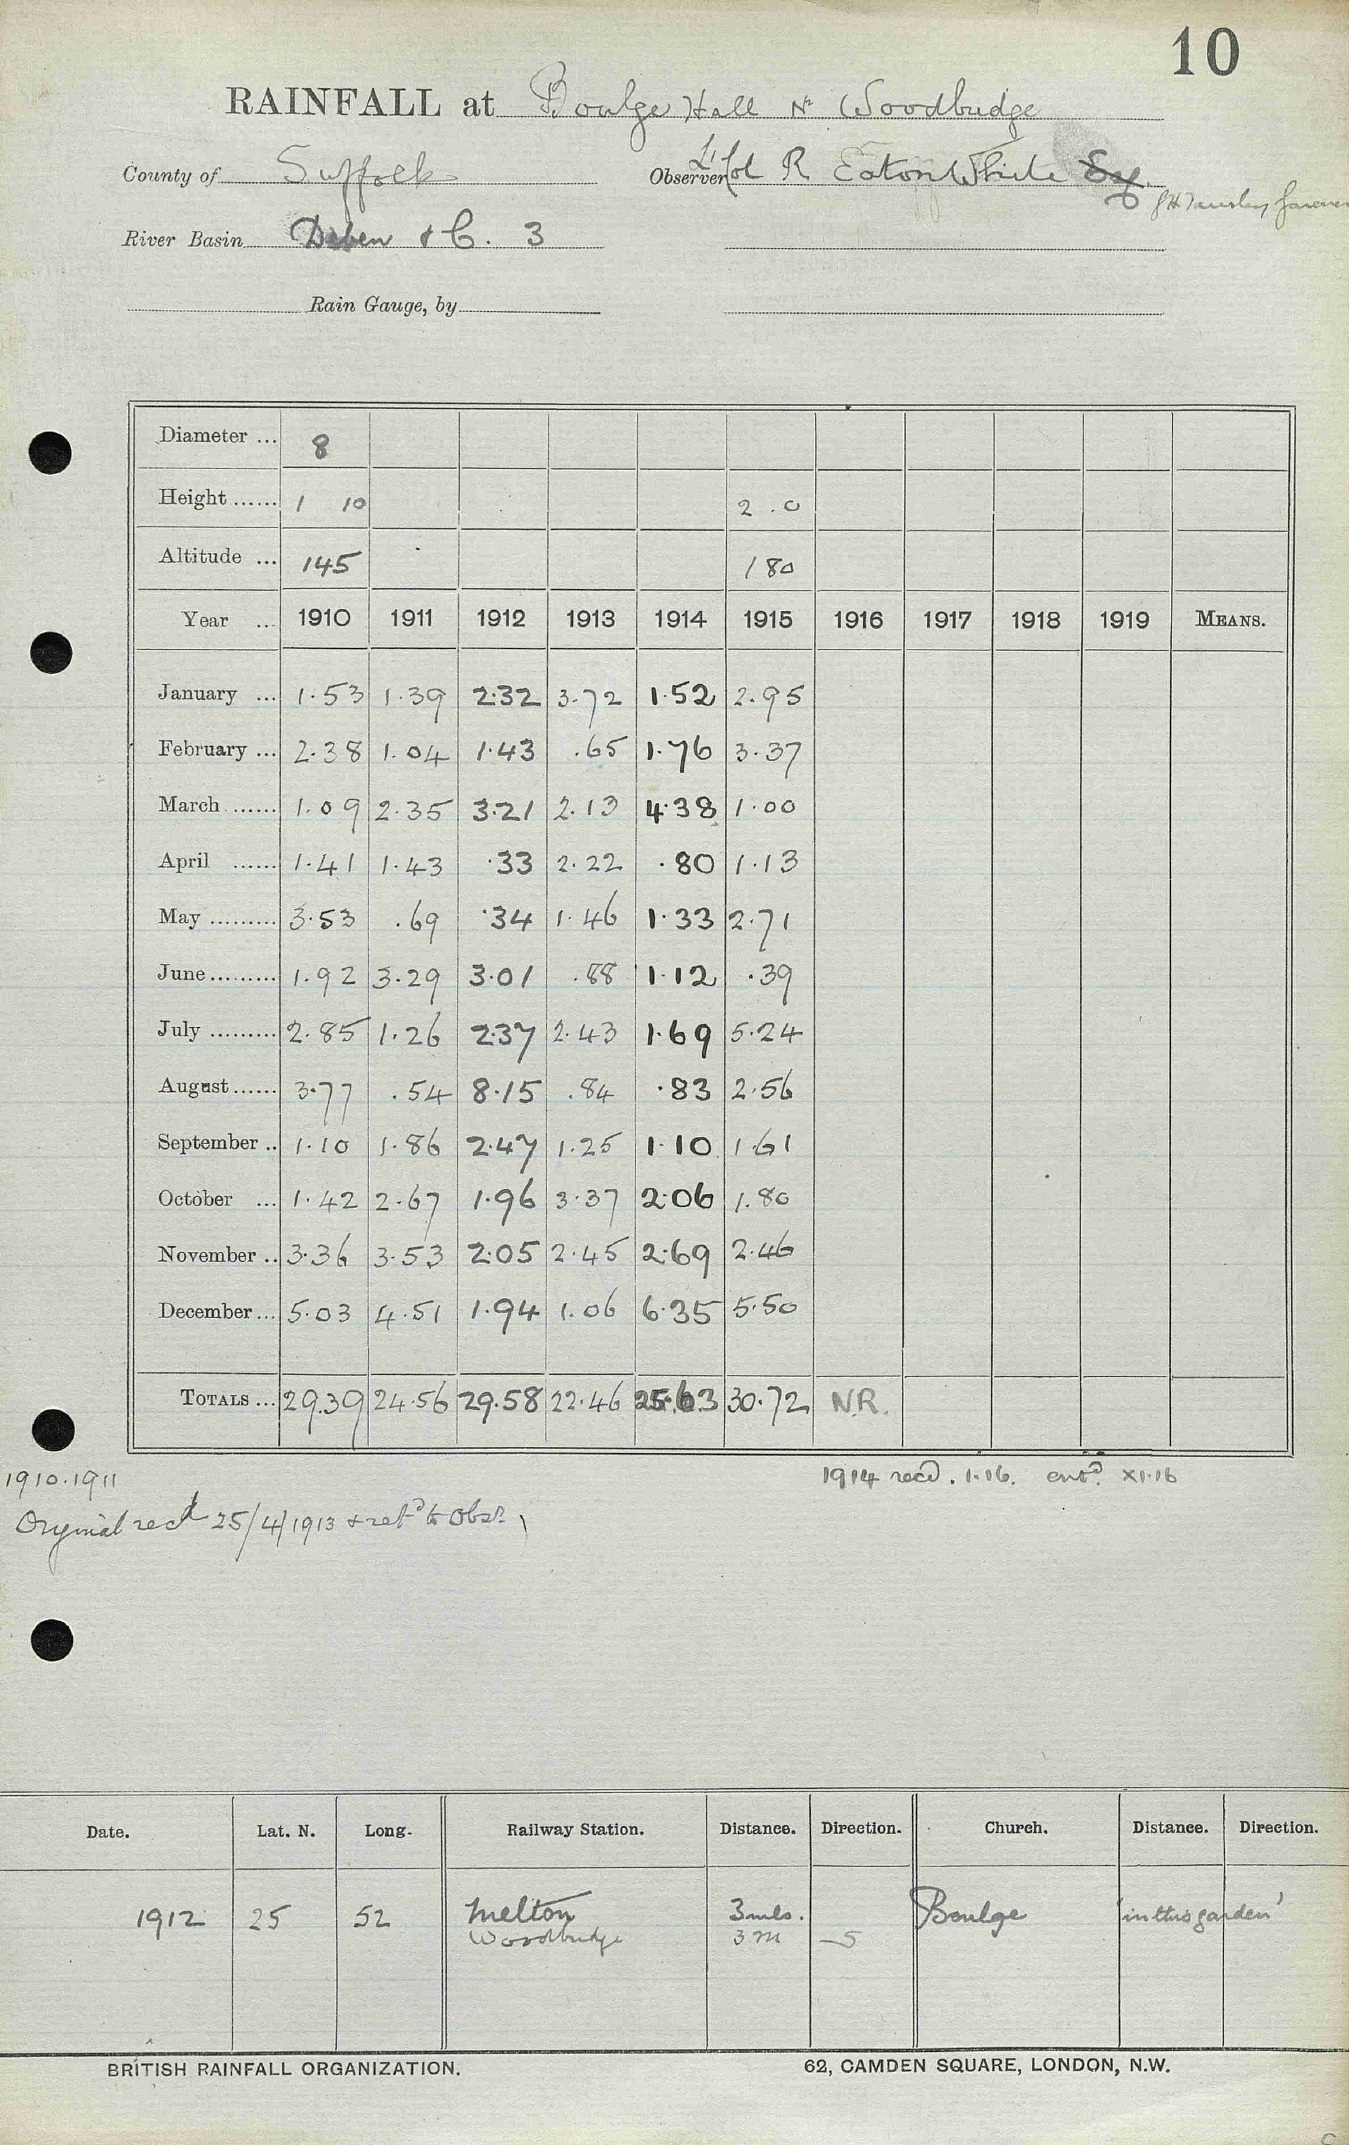 10
RAINFALL at Boulge Hall Nr Woodbridge
County of Suffolk Observer Lt Col R Eaton White Esq
River Basin Deben & C. 3
Rain Gauge, by
Diameter ... 8
Height ...... 1 10 2.0
Altitude ... 145 180
Year ... 1910 1911 1912 1913 1914 1915 1916 1917 1918 1919 MEANS.
January ... 1.53 1.39 2.32 3.72 1.52 2.95
February ... 2.38 1.04 1.43 .65 1.76 3.37
March ...... 1.09 2.35 3.21 2.13 4.38 1.00
April ...... 1.41 1.43 .33 2.22 .80 1.13
May ......... 3.53 .69 .34 1.46 1.33 2.71
June ......... 1.92 3.29 3.01 .88 1.12 .39
July ......... 2.85 1.26 2.37 2.43 1.69 5.24
August ...... 3.77 .54 8.15 .84 .83 2.56
September .. 1.10 1.86 2.47 1.25 1.10 1.61
October ... 1.42 2.67 1.96 3.37 2.06 1.80
November .. 3.36 3.53 2.05 2.45 2.69 2.46
December ... 5.03 4.51 1.94 1.06 6.35 5.50
TOTALS ... 29.39 24.56 29.58 22.46 25.63 30.72 N.R.
1910.1911 1914 recd. 1.16. entd. X1.16
Original recd 25/4/1913 & retd to Obsr.
Date. Lat. N. Long. Railway Station. Distance. Direction. Church. Distance. Direction.
1912 25 52 Melton 3 mls. Boulge 'in this garden'
Woodbridge 3 m S
BRITISH RAINFALL ORGANIZATION. 62, CAMDEN SQUARE, LONDON, N.W.